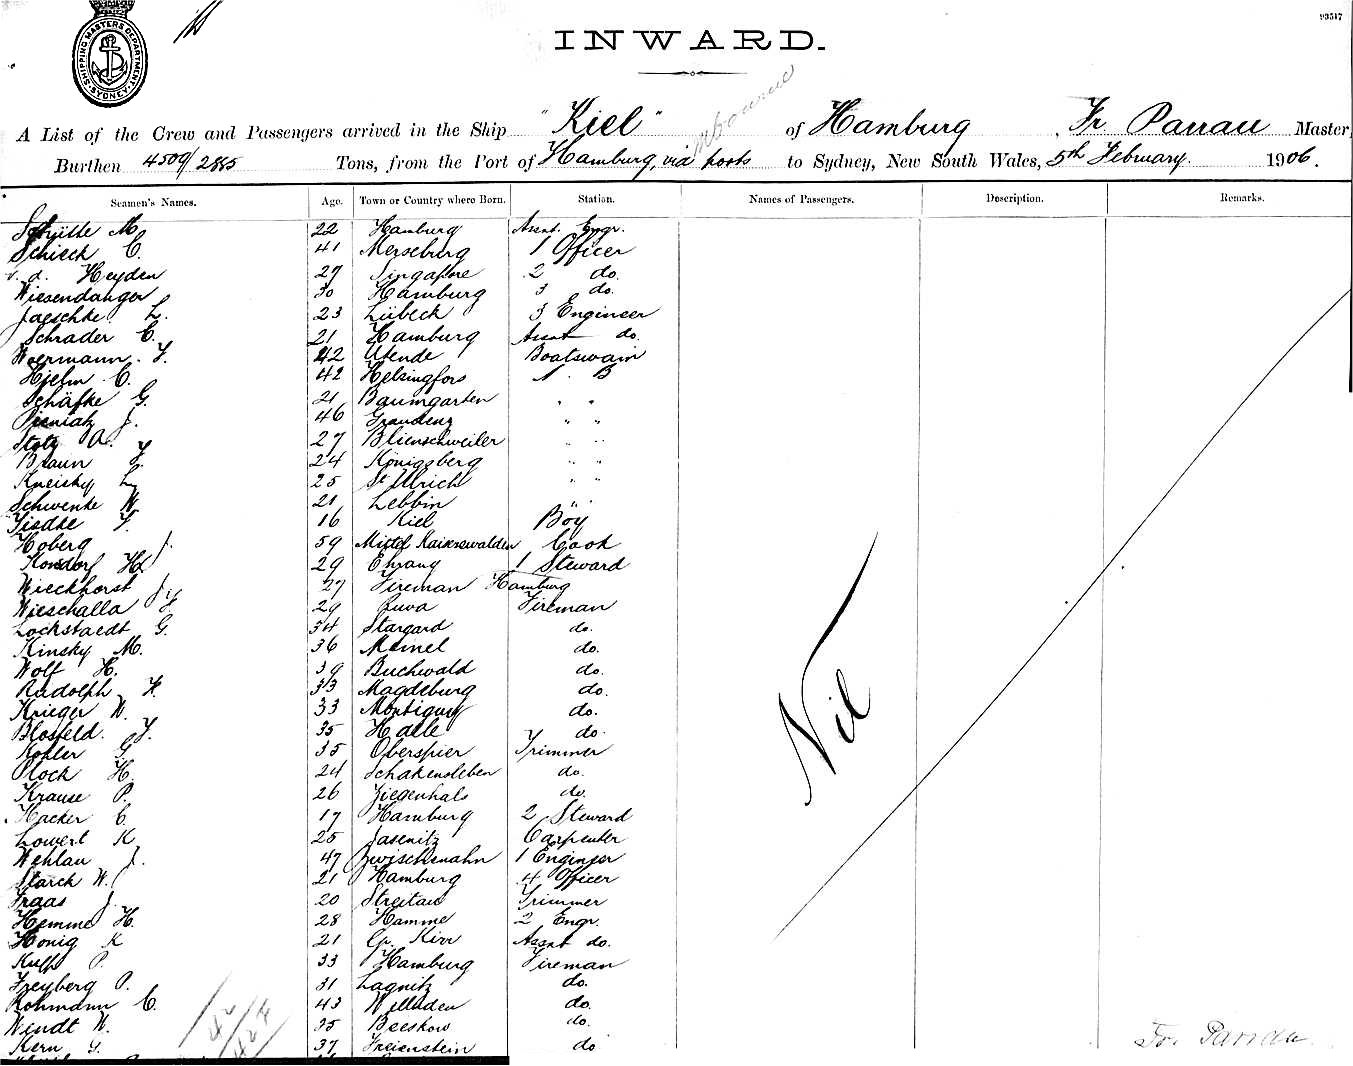 93517
SHIPPING MASTERS DEPARTMENT SYDNEY
INWARD.
A List of the Crew and Passengers arrived in the Ship "Kiel" of Hamburg, Fr Panau Master,
Burthen 4509/2885 Tons, from the Port of Hamburg, via ports to Sydney, New South Wales, 5th February 1906.
Seamen's Names. Age. Town or Country where Born. Station. Names of Passengers. Description. Remarks.
Schütte M. 22 Hamburg Assnt. Engr.
Schieck C. 41 Merseburg 1 Officer
v. d. Heyden 27 Singapore 2 do.
Wiesendanger 30 Hamburg 3 do.
Jaeschke L. 23 Lübeck 3 Engineer
Schrader C. 21 Hamburg Assnt do.
Woermann F. 42 Utende Boatswain
Hjelm C. 42 Helsingfors A. B
Schäfke G. 21 Baumgarten " "
J. 46 Graudenz " "
Stotz A. 27 Blienschweiler " "
Braun F. 24 Königsberg " "
Kneisky L 25 St Ulrich " "
Schwenke W. 21 Lebbin "
Tiedke F. 16 Kiel Boy
Hoberg J. 59 Mittel Kaiserswalden Cook
Konsdorf H. 29 Ehrang 1 Steward
Wieckhorst J. 27 Fireman Hamburg
Wieschalla F. 29 Fireman
Lockstaedt G. 34 Stargard do.
Kinsky M. 36 Memel do.
Wolf H. 39 Buchwald do.
Rudolph F. 33 Magdeburg do.
Krieger W. 33 Montigny do.
Blosfeld. F. 35 Halle do.
Kohler G 35 Oberspier Trimmer
Plock H. 24 Schakensleben do.
Krause P. 26 Ziegenhals do.
Hacker C. 17 Hamburg 2 Steward
Lowert K 25 Jasenitz Carpenter
Wehlau J. 47 Zwischenahn 1 Engineer
Starck W. 21 Hamburg 4 Officer
Fraas J. 20 Streitau Trimmer
Hemme H. 28 Hamme 2 Engr.
Honig K 21 Assnt do.
P. 33 Hamburg Fireman
Freyberg P. 31 Lagnitz do.
Rohmann C. 43 Willsden do.
Windt W. 35 Beeskow do.
Kern G. 37 Freienstein do
Nil
42
Fr. Panau